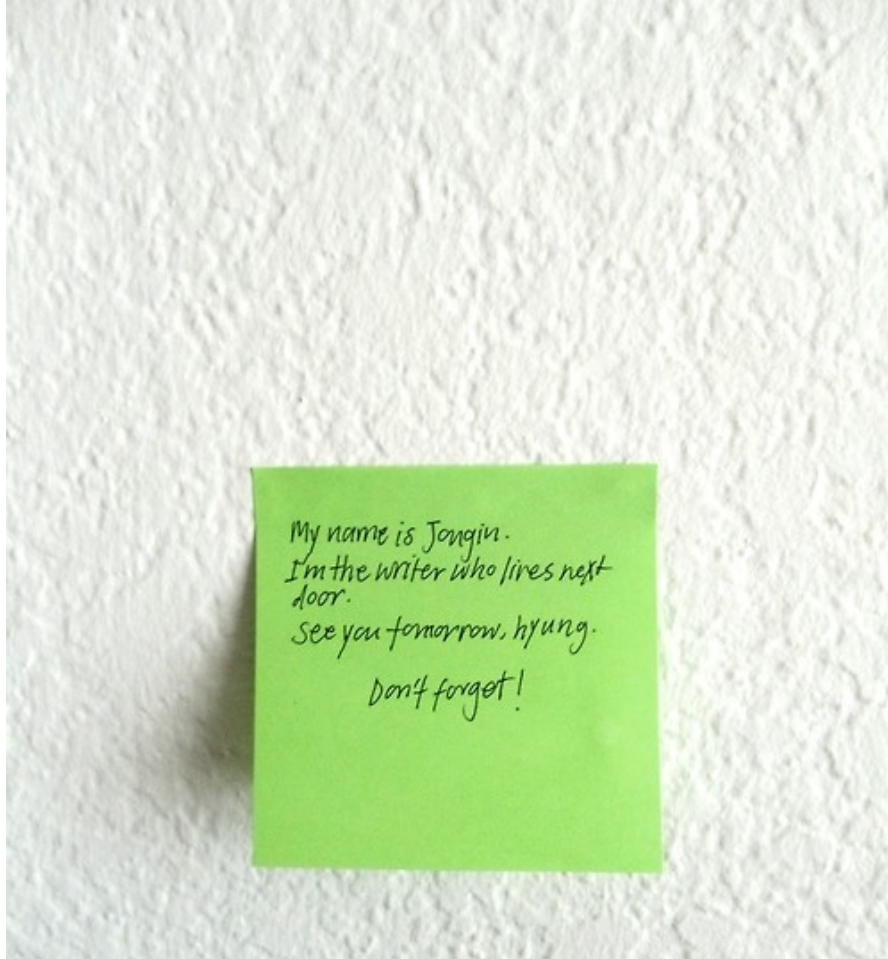 My name is Jongin.
I'm the writer who lives next
door.
See you tomorrow, hyung.
Don't forget!